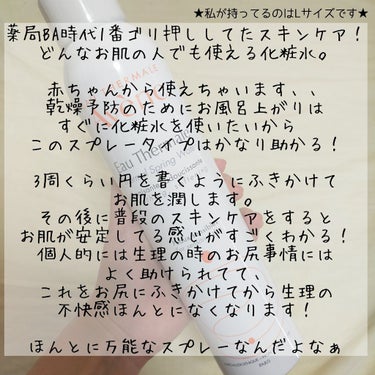 ★私が持ってるのはLサイズです★
薬局BA時代1番ゴリ押ししてたスキンケア！
どんなお肌の人でも使える化粧水。
赤ちゃんから使えちゃいます、、
乾燥予防のためにお風呂上がりは
すぐに化粧水を使いたいから
このスプレータイプはかなり助かる！
3周くらい円を書くようにふきかけて
お肌を潤します。
その後に普段のスキンケアをすると
お肌が安定してる感じがすごくわかる！
個人的には生理の時のお尻事情には
よく助けられてて、
これをお尻にふきかけてから生理の
不快感ほんとになくなります！
ほんとに万能なスプレーなんだよなぁ
THERMALE
Eau Thermale
Spring Water
PARIS